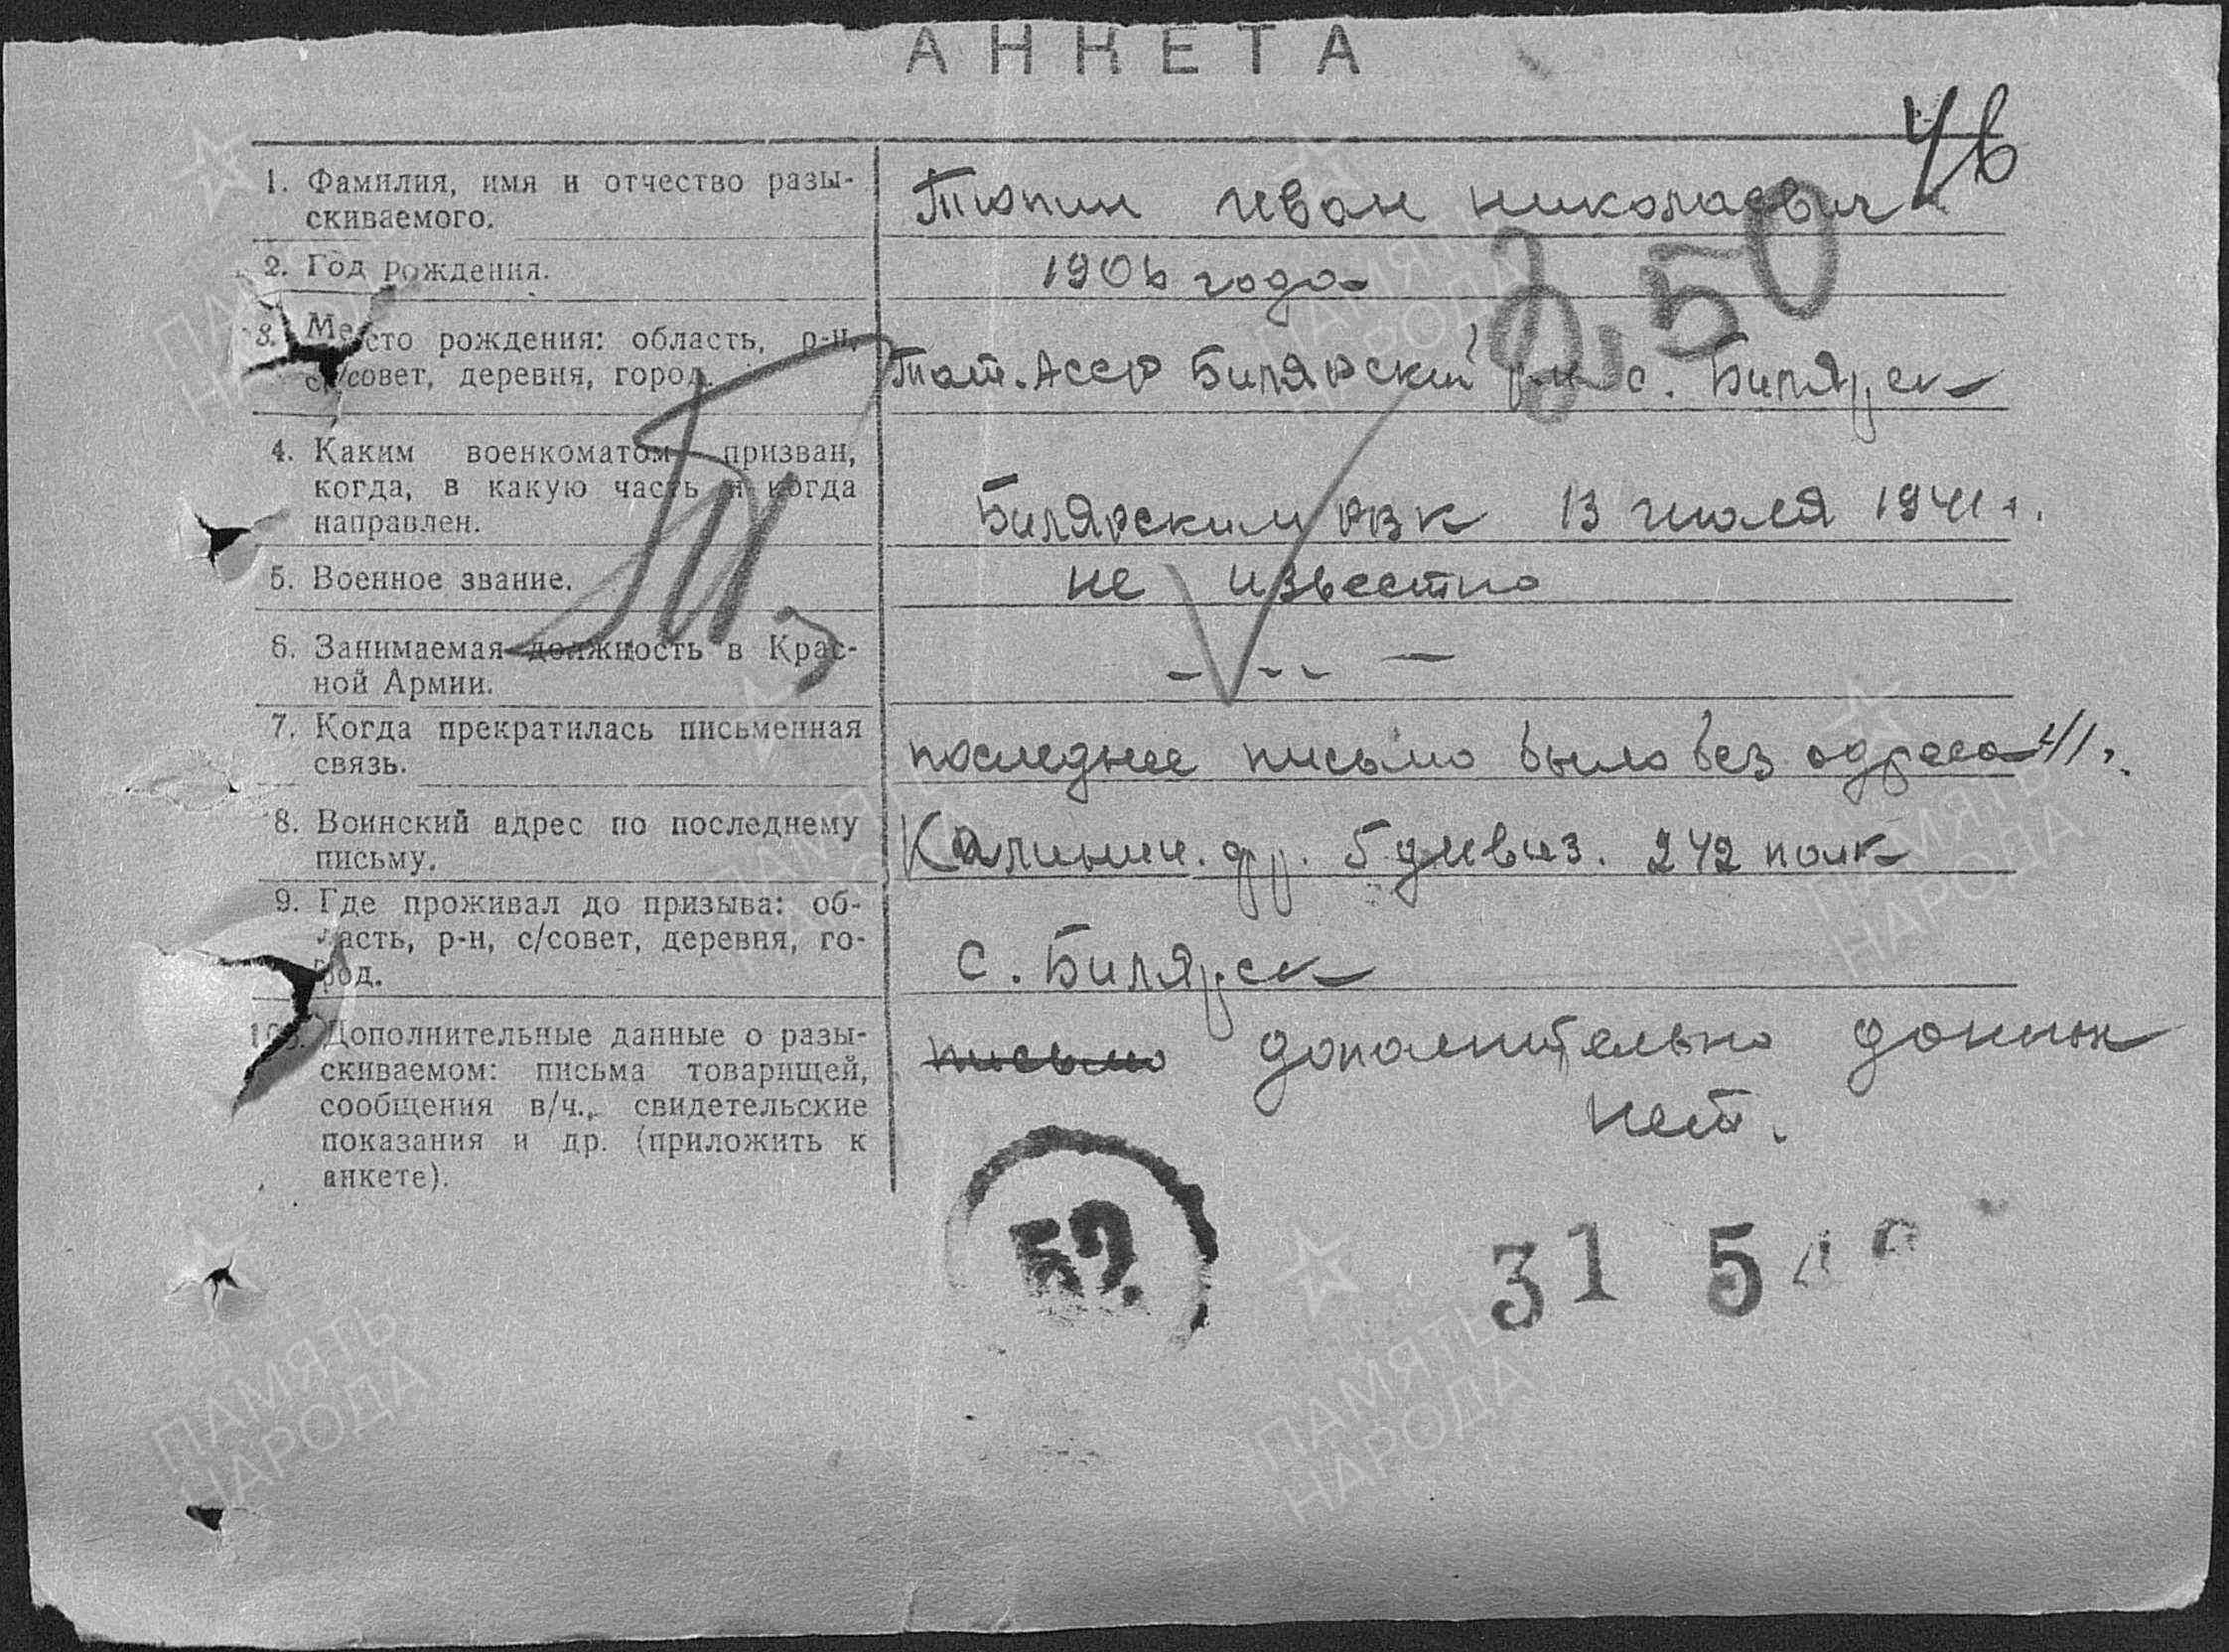 АНКЕТА
46
1. Фамилия, имя и отчество разы-
скиваемого.
Тюпин иван николаевич
2. Год рождения.
1906 года
50
3. Место рождения: область, р-н,
с/совет, деревня, город.
Тат. АССР Билярский р-н с. Билярск
4. Каким военкоматом призван,
когда, в какую часть и когда
направлен.
Билярским РВК 13 июля 1941 г.
5. Военное звание.
не известно
6. Занимаемая должность в Крас-
ной Армии.
7. Когда прекратилась письменная
связь.
последнее письмо было без адреса 41 г.
8. Воинский адрес по последнему
письму.
Калинин. фр. 5 дивиз. 242 полк
9. Где проживал до призыва: об-
ласть, р-н, с/совет, деревня, го-
род.
с. Билярск
10. Дополнительные данные о разы-
скиваемом: письма товарищей,
сообщения в/ч., свидетельские
показания и др. (приложить к
анкете).
письмо дополнительно данных
нет.
52
31 5
ПАМЯТЬ
НАРОДА